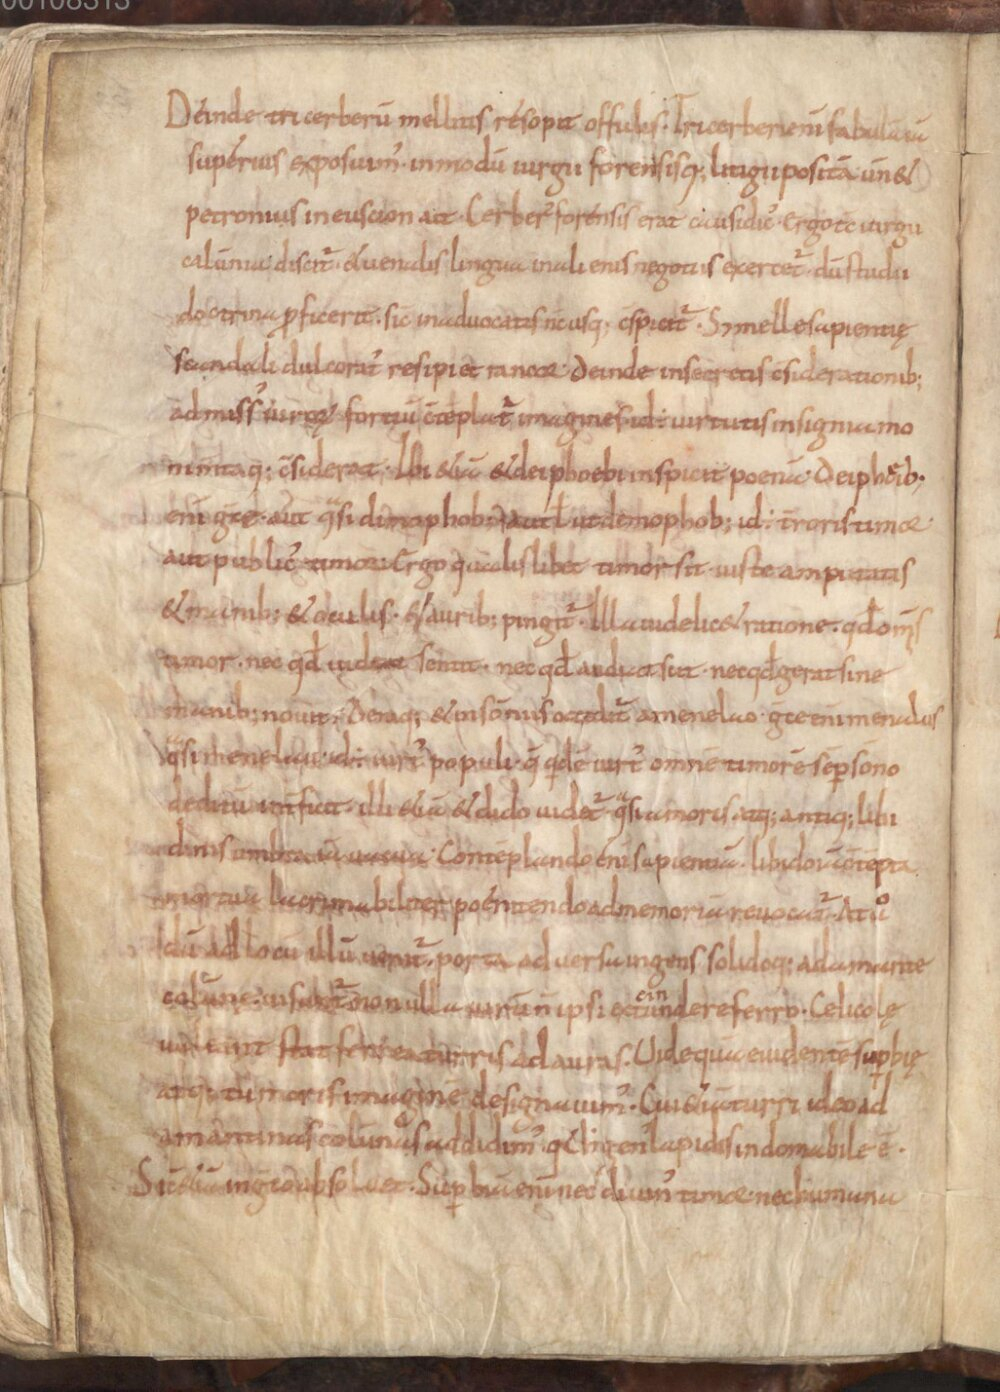 00108313
Deinde tricerberū mellitis resopit offulis. Tricerberi enī fabulā iā
superius exposuim᾽. inmodū iurgii forensisq; litigii positā. un&
petronius ineuscion ait. Cerber᾽ forensis erat causidic᾽. Ergo tc̄ iurgii
calūnia discit᷑. & uenalis lingua inalienis negotiis exercet᷑. dū studii
doctrina ꝓficerit. sic inaduocatis nc̄usq; c̄spicit᷑. S; melle sapientię
scandali dulcorat᾽ resipiet rancor. Deinde insecretis c̄siderationib;
admiss᾽ uirorꝝ fortiū c̄teplat᷑ imagines. id: uirtutis insignia mo
nimtaq; c̄siderat. Ibi &iā & deiphoebi inspicit poenā. Deiphoeb;
enī gc̄e. aut qͣsi dimophob; aut ut demophob; id: t̄roris timor
aut public᾽ timor. Ergo qualislibet timor sit. iuste amputatis
& manib; & oculis. & aurib; pingit᷑. Illa uidelic& ratione. qđ om̄s
timor. nec qđ uideat sentit. nec qđ audiat scit. nec qđ gerat sine
manib; nouit. Deniq; & insōnis occidit᷑ amenelao. gc̄e enī menelaus
qͣsi menelau. id: uirt᾽ populi. q̄ qdē uirt᾽ omnē timorē sēp sōno
deditū int̄ficit. illi &iā & dido uidet᷑ qͣsi amoris atq; antiq; libi
dinis umbra iā uacua. Contēplando enī sapientiā. libido iā c̄tēpta
mortua lacrimabiliter poenitendo admemoriā reuocat᷑. At ů
dū ad locū illū uenit᷑. porta aduersa ingens solidoq; adamante
colūne. uis ut n̄ nulla uirūm n̄ ipsi excindere ferro. Celicolę
ualeant stat ferrea turris ad auras. Uide quā euidentē supbię
atq; tumoris imaginē designauim᾽. Cui &iā turri ideo ad
amantinas colūnas addidim᾽. q& hgen᾽ lapidis indomabile ē.
Sic &iā ingc̄o absoluet. Superbiā enī nec diuin᾽ timor nec humana